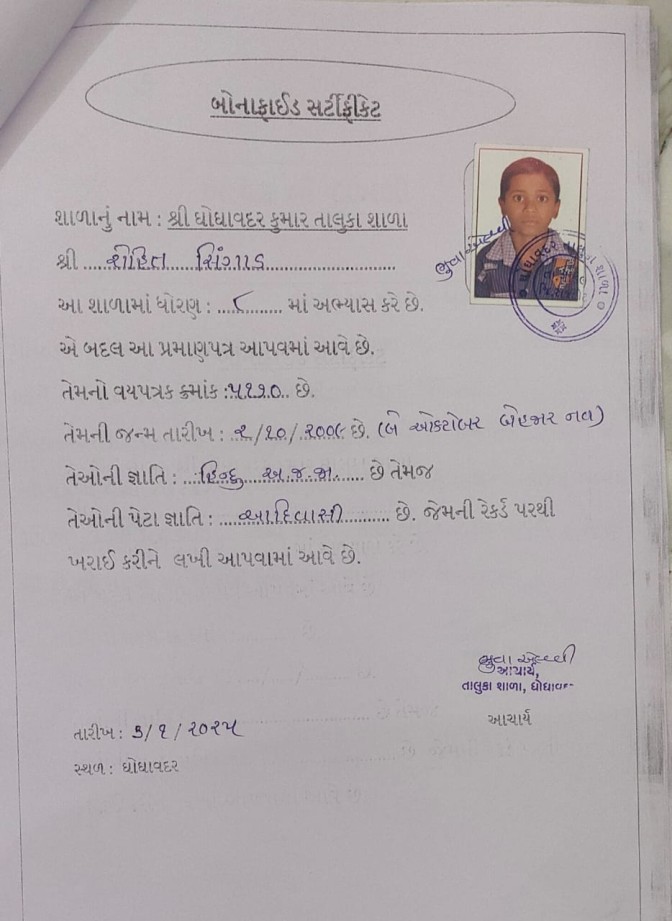 બોનાફાઈડ સર્ટીફીકેટ
શાળાનું નામ : શ્રી ઘોઘાવદર કુમાર તાલુકા શાળા
શ્રી ....રોહિત સિંગાડ....
આ શાળામાં ધોરણ : ....૮.... માં અભ્યાસ કરે છે.
એ બદલ આ પ્રમાણપત્ર આપવામાં આવે છે.
તેમનો વયપત્રક ક્રમાંક :૫૧૧૦.. છે.
તેમની જન્મ તારીખ : ૨/૧૦/૨૦૦૯ છે. (બે ઓક્ટોબર બેહજાર નવ)
તેઓની જ્ઞાતિ : ...હિન્દુ અ.જ.જા..... છે તેમજ
તેઓની પેટા જ્ઞાતિ : ...આદિવાસી....... છે. જેમની રેકર્ડ પરથી
ખરાઈ કરીને લખી આપવામાં આવે છે.
આચાર્ય,
તાલુકા શાળા, ઘોઘાવદર
આચાર્ય
તારીખ : ૩/૧/૨૦૨૫
સ્થળ : ઘોઘાવદર